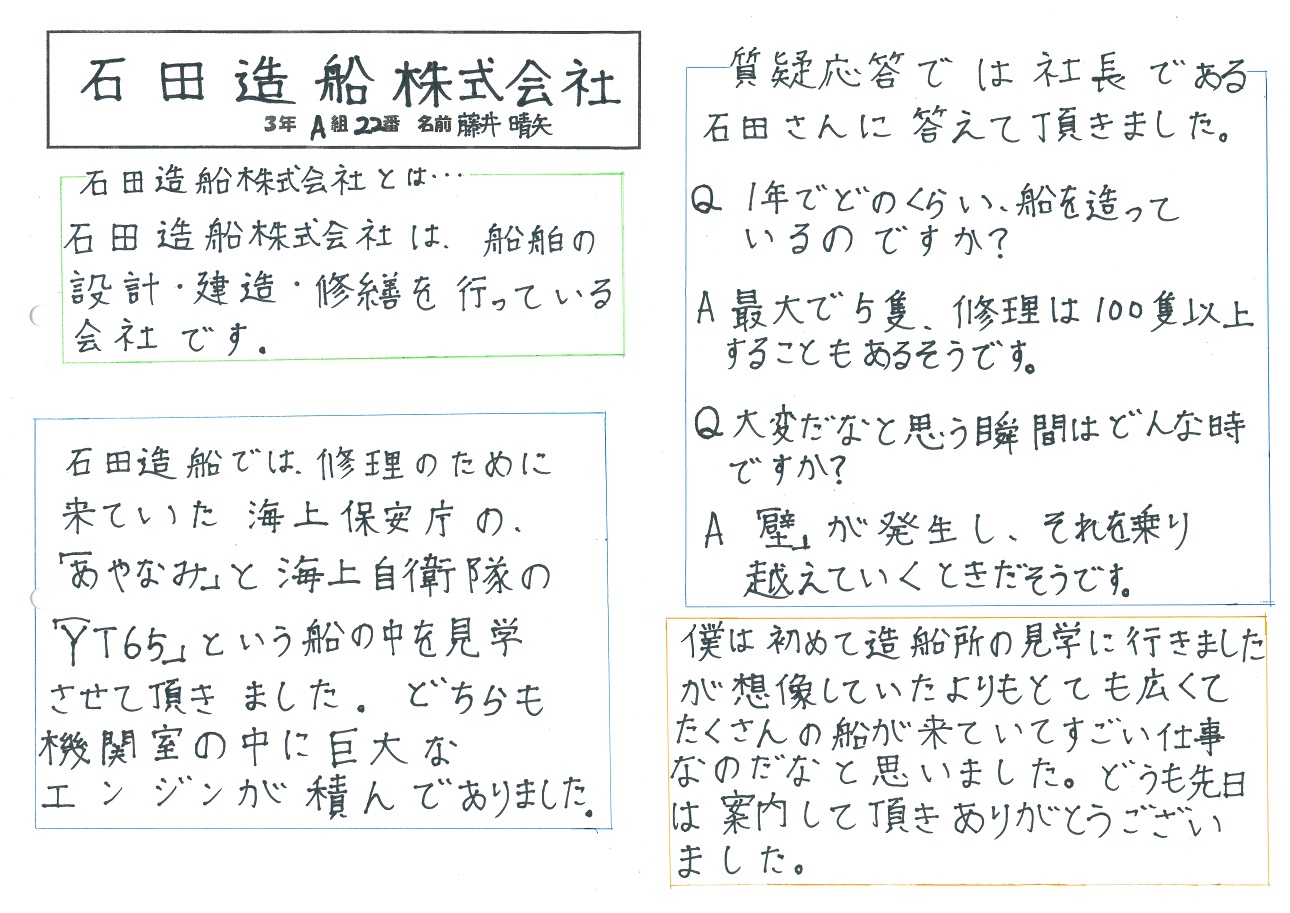 石田造船株式会社
3年 A組 22番 名前 藤井 晴矢
石田造船株式会社とは…
石田造船株式会社は、船舶の
設計・建造・修繕を行っている
会社です。
石田造船では、修理のために
来ていた海上保安庁の、
「あやなみ」と海上自衛隊の
「YT65」という船の中を見学
させて頂きました。どちらも
機関室の中に巨大な
エンジンが積んでありました。
質疑応答では社長である
石田さんに答えて頂きました。
Q 1年でどのくらい、船を造って
いるのですか?
A 最大で5隻、修理は100隻以上
することもあるそうです。
Q 大変だなと思う瞬間はどんな時
ですか?
A 「壁」が発生し、それを乗り
越えていくときだそうです。
僕は初めて造船所の見学に行きました
が想像していたよりもとても広くて
たくさんの船が来ていてすごい仕事
なのだなと思いました。どうも先日
は案内して頂きありがとうござい
ました。